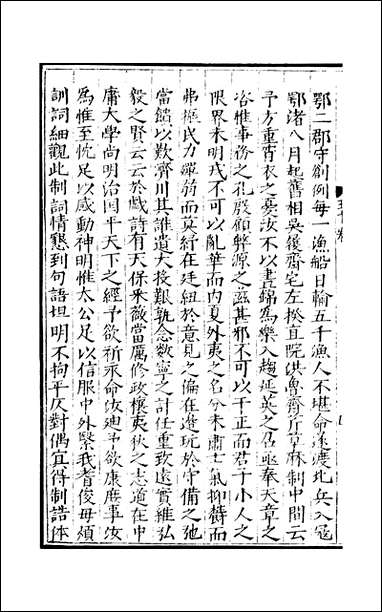 鄂二郡守創例每一漁船日輸五千漁人不堪命遂渡北兵入寇
鄂渚八月起舊相吳履齋宅左揆直院洪魯齋斤草麻制中間云
予方重宵衣之憂汝不以晝錦為樂入趨延英之召亟奉天章之
咨惟事務之孔殷顧弊源之滋甚邪不可以干正而君子小人之
限界未明戎不可以亂華而內夏外夷之名分未肅士氣抑鬱而
弗振民力殫弱而莫紓在廷紐於意見之偏在邊玩於守備之弛
當饋以歎濟川其誰遺大投艱孰念敉寧之計任重致遠實維弘
毅之賢云云於戲詩有天保采薇當厲修政攘夷狄之志道在中
庸大學尚明治國平天下之經予欲祈永命汝迪予欲康庶事汝
為惟至忱足以感動神明惟太公足以信服中外緊我耆俊毋煩
訓詞細觀此制詞情懇到句語坦明不拘平仄對偶宜得制誥体